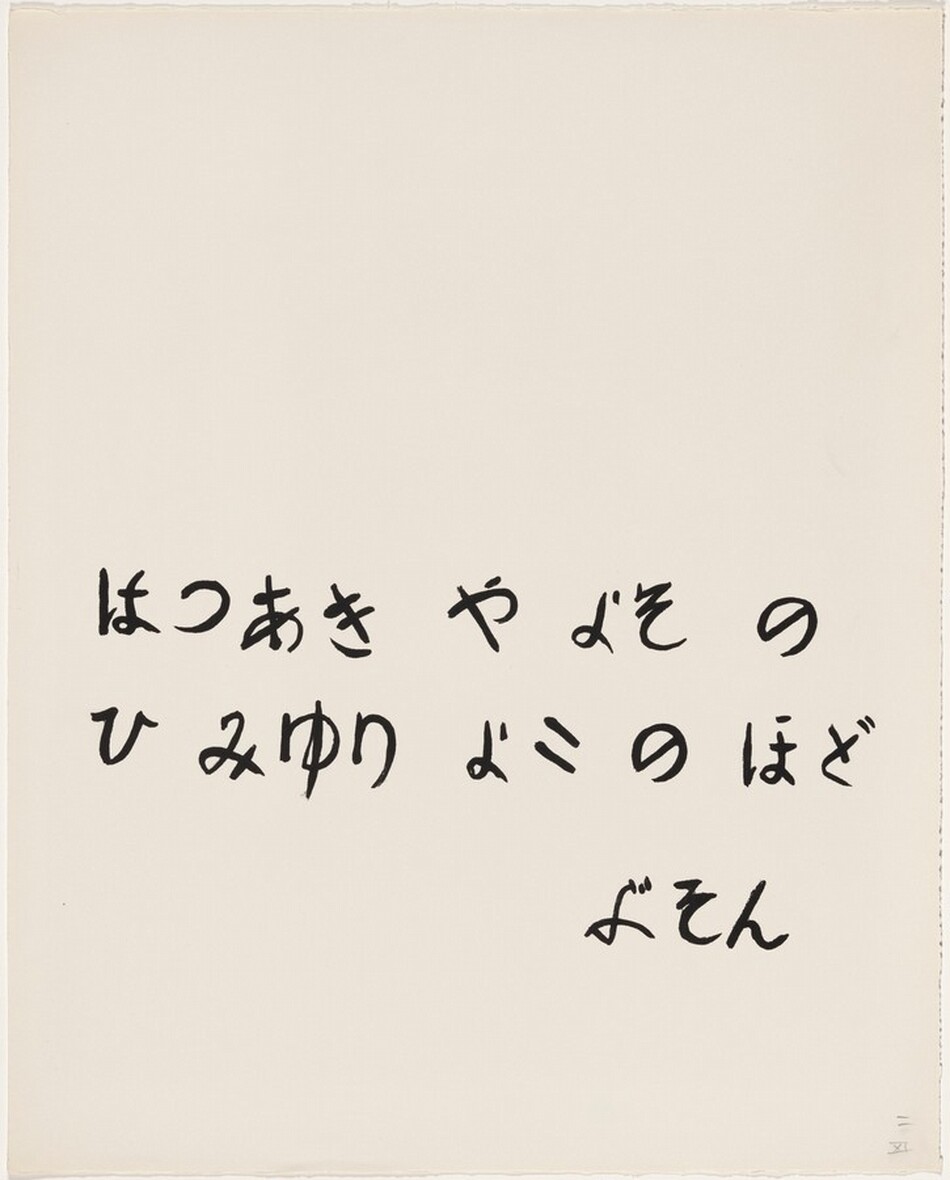 はつあき や よそ の
ひ みゆり よい の ほど
ぶそん